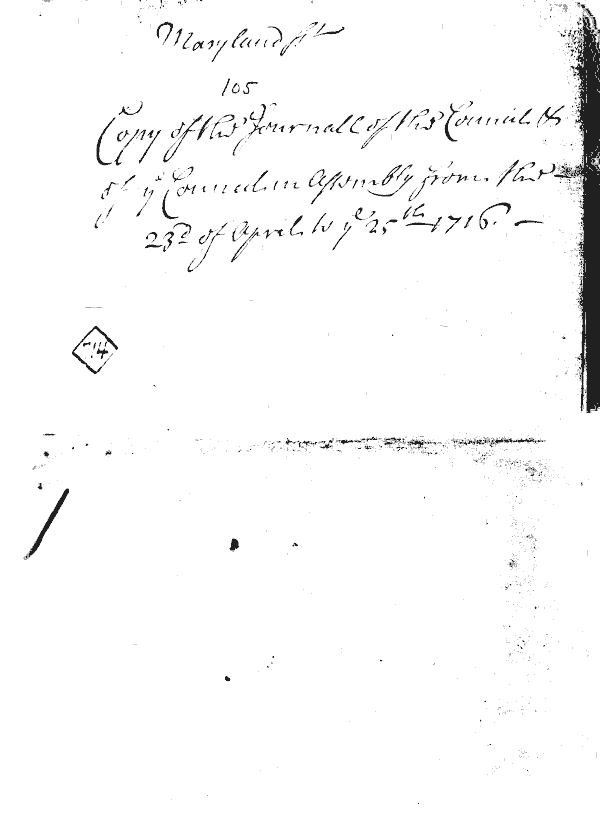 Maryland
105
Copy of the Journall of the Council &
of yᵉ Council in Assembly from the
23ᵈ of April to yᵉ 25ᵗʰ 1716.